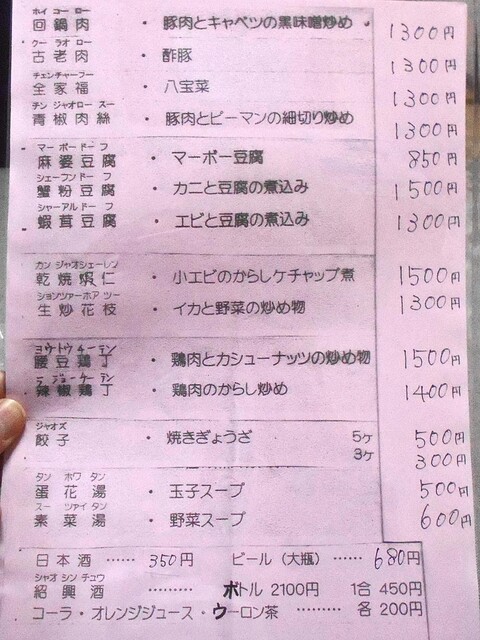 ホイ コー ロー
回鍋肉 ・ 豚肉とキャベツの黒味噌炒め 1300円
クー ラオ ロー
古老肉 ・ 酢豚 1300円
チェンチャーフー
全家福 ・ 八宝菜 1300円
チン ジャオロー スー
青椒肉絲 ・ 豚肉とピーマンの細切り炒め 1300円
マー ボー ドー フ
麻婆豆腐 ・ マーボー豆腐 850円
シェーフンドー フ
蟹粉豆腐 ・ カニと豆腐の煮込み 1500円
シャーアルドー フ
蝦茸豆腐 ・ エビと豆腐の煮込み 1300円
カン ジャオシェーレン
乾焼蝦仁 ・ 小エビのからしケチャップ煮 1500円
ションツァーホア ツー
生炒花枝 ・ イカと野菜の炒め物 1300円
ヨウ トウ チー テン
腰豆鶏丁 ・ 鶏肉とカシューナッツの炒め物 1500円
ラー ジョー チー テン
辣椒鶏丁 ・ 鶏肉のからし炒め 1400円
ジャオズ
餃子 ・ 焼きぎょうざ 5ヶ 500円
3ヶ 300円
タン ホワ タン
蛋花湯 ・ 玉子スープ 500円
スー ツァイ タン
素菜湯 ・ 野菜スープ 600円
日本酒 …… 350円 ビール（大瓶）…… 680円
シャオ シン チュウ
紹興酒 ……… ボトル 2100円 1合 450円
コーラ・オレンジジュース・ウーロン茶 ……… 各 200円